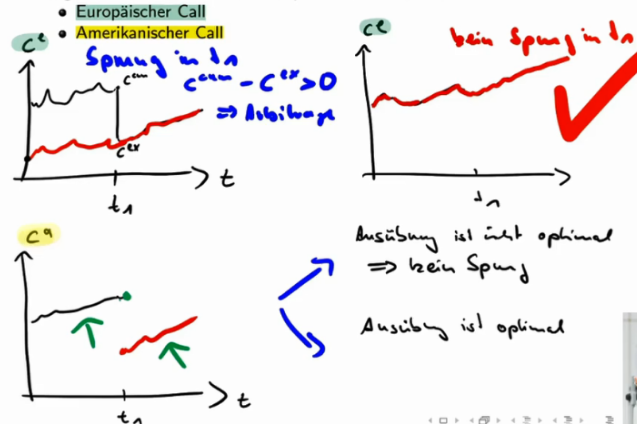 • Europäischer Call
• Amerikanischer Call
Cᵉ
Sprung in t₁
Cᶜᵘᵐ
Cᶜᵘᵐ - Cᵉˣ > 0
⇒ Arbitrage
Cᵉˣ
t
t₁
Cᵉ
kein Sprung in t₁
t₁
Cᵃ
t
t₁
Ausübung ist nicht optimal
⇒ kein Sprung
Ausübung ist optimal